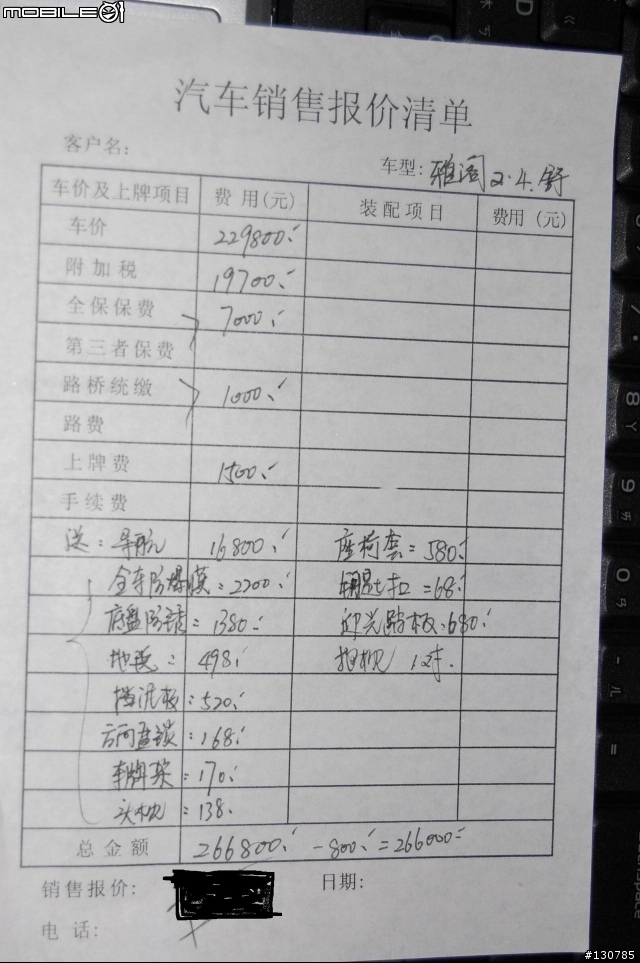 MOBILE01
汽车销售报价清单
客户名:
车型: 雅阁 2.4. 舒
车价及上牌项目 费 用(元) 装配项目 费用 (元)
车价 229800.
附加税 19700.
全保保费 7000.
第三者保费
路桥统缴 1000.
路费
上牌费 1500.
手续费
送: 导航 16800. 座椅套 = 580.
全车防爆膜 = 2200. = 68.
底盘防锈 = 1380. 迎光踏板: 680.
地毯: 498. 抱枕 1对.
挡泥板: 520.
方向盘锁: 168.
车牌架: 170.
头枕: 138.
总金额 266800. -800. = 266000-
销售报价: 日期:
电 话:
#130785